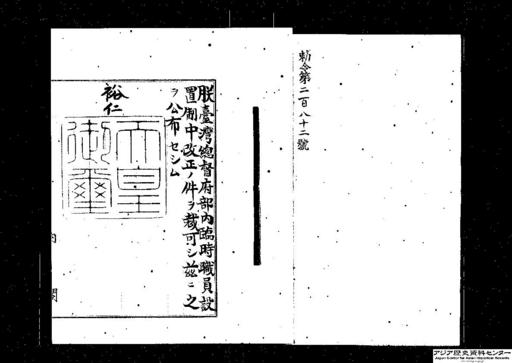 勅令第二百八十二號
朕臺灣總督府部內臨時職員設
置制中改正ノ件ヲ裁可シ茲ニ之
ヲ公布セシム
裕仁
天皇
御璽
內
閣
アジア歴史資料センター
Japan Center for Asian Historical Records